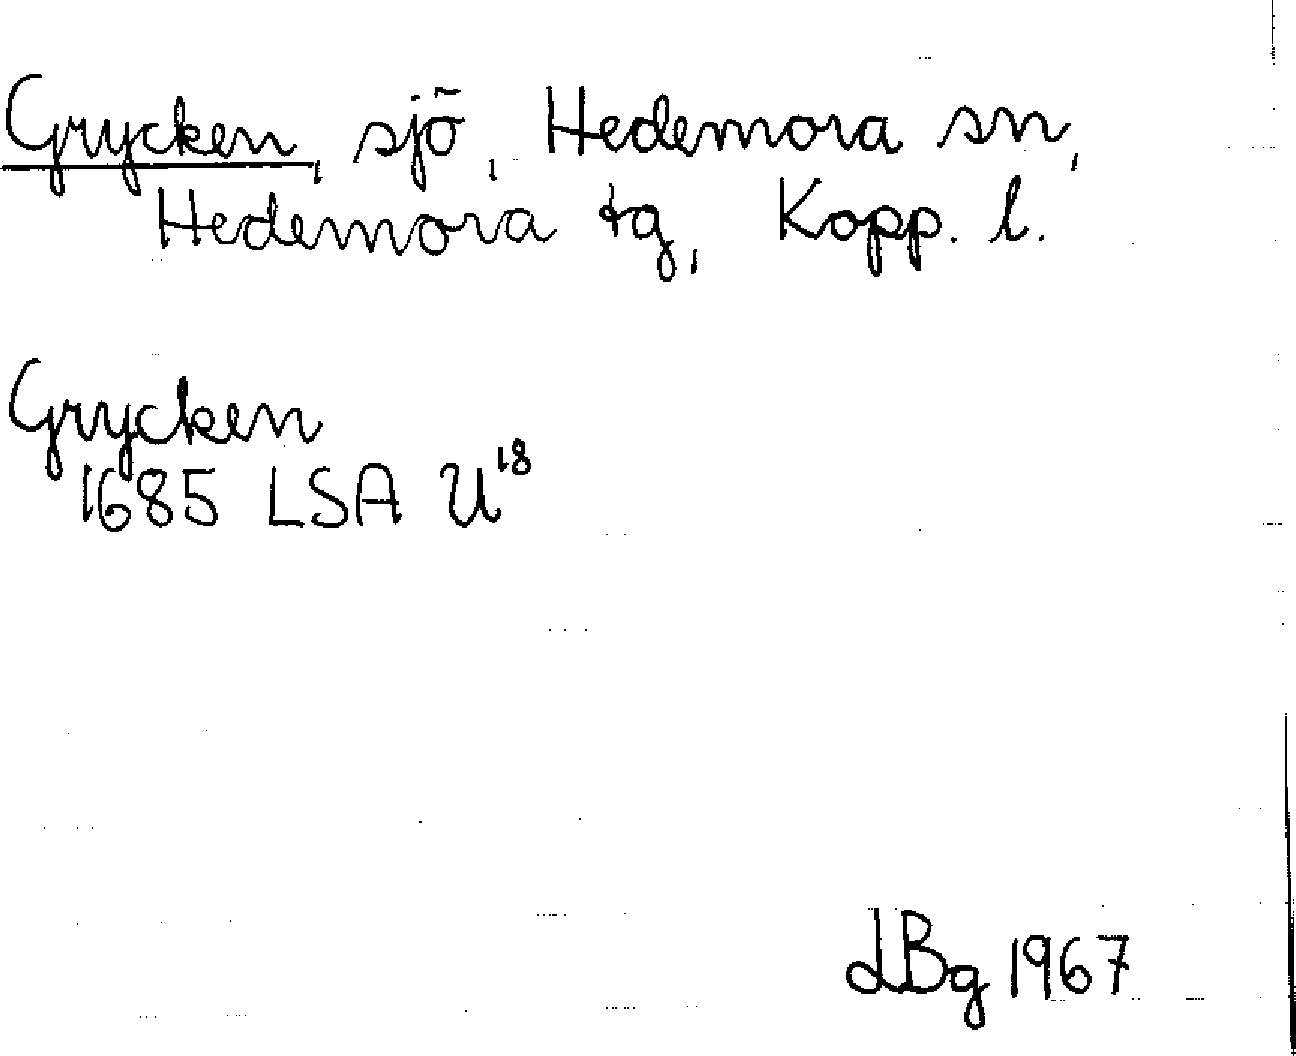 Grycken, sjö, Hedemora sn,
Hedemora tg, Kopp. l.
Grycken
1685 LSA U¹⁸
LBg 1967